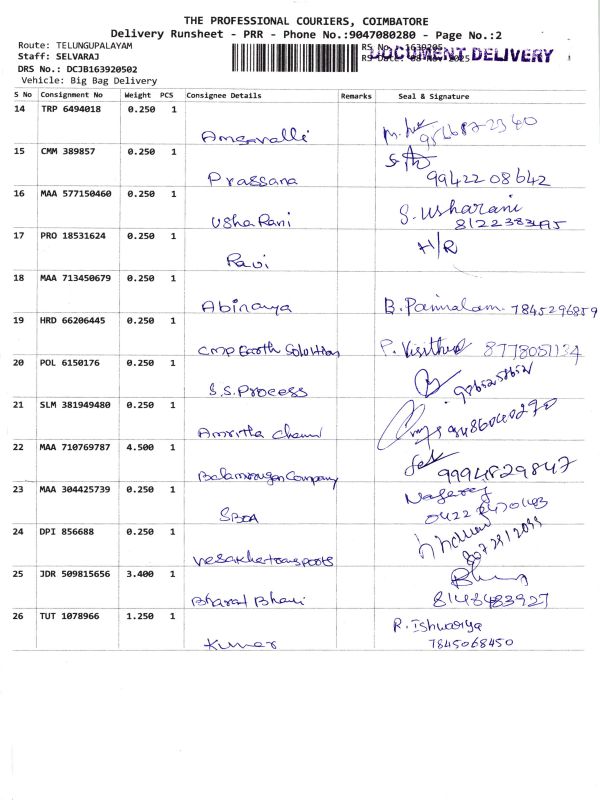 THE PROFESSIONAL COURIERS, COIMBATORE
Delivery Runsheet - PRR - Phone No.:9047080280 - Page No.:2
Route: TELUNGUPALAYAM
Staff: SELVARAJ
DRS No.: DCJB163920502
Vehicle: Big Bag Delivery
RS No.: 1639205
RS Date: 08 Nov 2025
DOCUMENT DELIVERY
S No Consignment No Weight PCS Consignee Details Remarks Seal & Signature
14 TRP 6494018 0.250 1
15 CMM 389857 0.250 1
Prassana 9942208642
16 MAA 577150460 0.250 1
Usha Rani S. Usharani
17 PRO 18531624 0.250 1
Ravi H/R
18 MAA 713450679 0.250 1
Abinaya 7845296859
19 HRD 66206445 0.250 1
CMP Earth Solutions 8778051134
20 POL 6150176 0.250 1
S.S.Process
21 SLM 381949480 0.250 1
Amritha 9486040270
22 MAA 710769787 4.500 1
Balamurugan Company 9994829847
23 MAA 304425739 0.250 1
SBOA Nagaraj
24 DPI 856688 0.250 1
25 JDR 509815656 3.400 1
Bharat Bhavi 8148483927
26 TUT 1078966 1.250 1
Kumar R. Ishwarya
7845068450